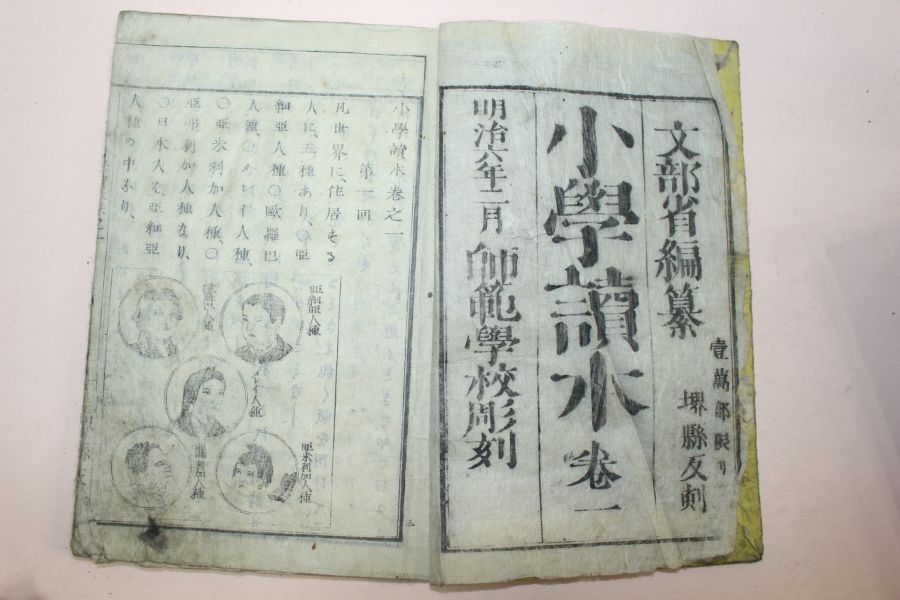 文部省編纂
壹萬部限リ
堺縣反刻
小學讀本 卷一
明治六年二月 師範學校彫刻
小學讀本卷之一
第一回
凡世界に、住居する
人に、五種あり、〇亞
細亞人種〇歐羅巴
人種、〇メレイ人種、
〇亞米利加人種、〇
亞弗利加人種なり、
〇日本人ハ、亞細亞
人種の中なり、
亞細亞人種
歐羅巴人種
メレイ人種
亞米利加人種
亞弗利加人種